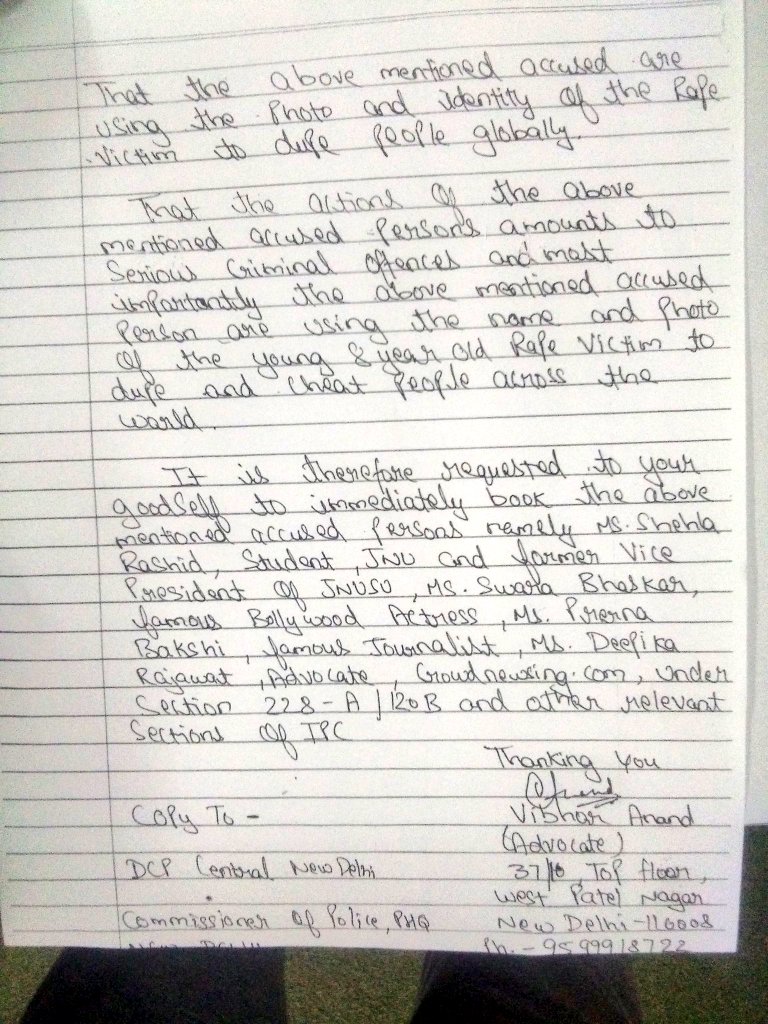 That the above mentioned accused are
using the Photo and identity of the Rape
Victim to dupe people globally.
That the actions of the above
mentioned accused Persons amounts to
Serious Criminal Offences and most
importantly the above mentioned accused
Person are using the name and Photo
of the young 8 year old Rape Victim to
dupe and Cheat People across the
world.
It is therefore requested to your
goodself to immediately book the above
mentioned accused Persons namely Ms. Shehla
Rashid, Student, JNU and former Vice
President of JNUSU, Ms. Swara Bhaskar,
famous Bollywood Actress, Ms. Prerna
Bakshi, famous Journalist, Ms. Deepika
Rajawat, Advocate, Crowdnewsing.com, under
Section 228-A / 120B and other relevant
Sections of IPC
Thanking You
Copy To - Vibhor Anand
(Advocate)
DCP Central New Delhi 37/16, Top floor,
West Patel Nagar
Commissioner of Police, PHQ New Delhi-110008
Ph. - 9599918722